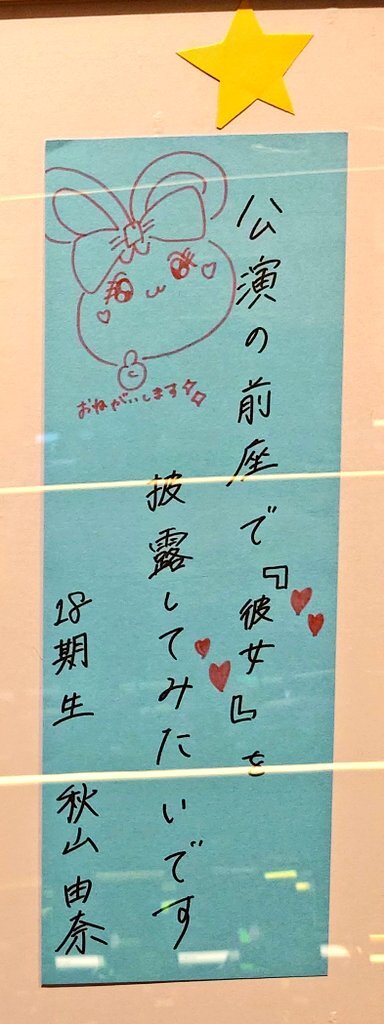 公演の前座で『彼女』を
披露してみたいです
18期生 秋山由奈
おねがいします